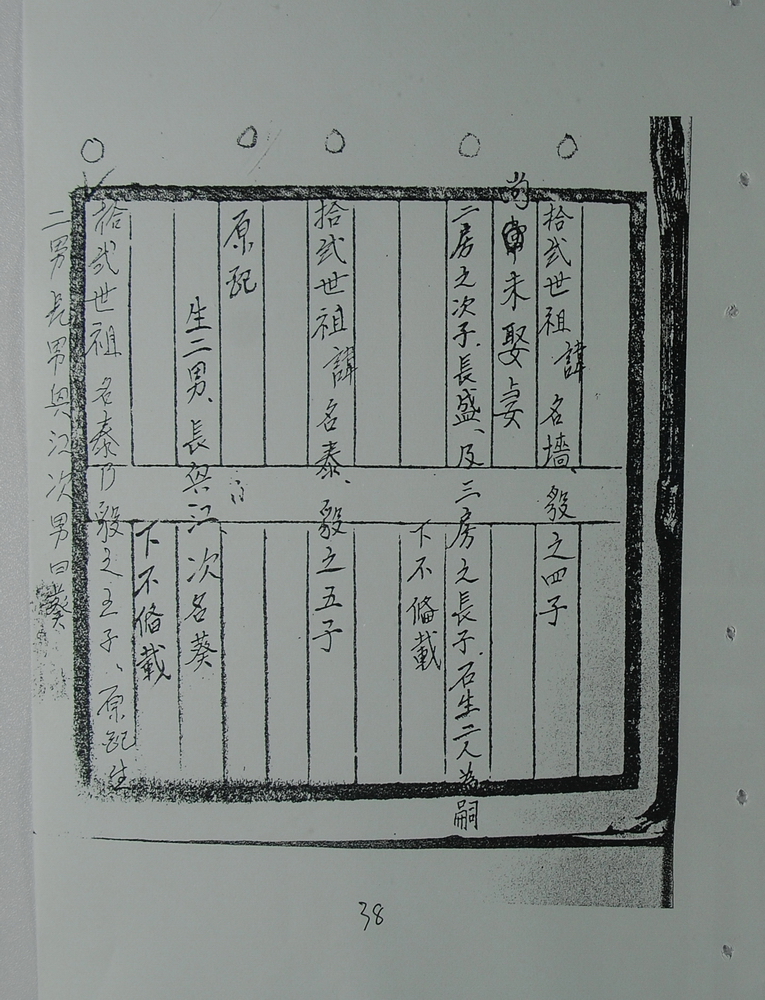 拾弍世祖 諱 名墻、毅之四子
尚 未娶妾
二房之次子、長盛、及三房之長子、石生二人為嗣
下不偹載
拾弍世祖 諱 名泰、毅之五子
原配
生二男、長興江、次名葵
下不偹載
拾弍世祖 名泰乃毅之五子、原配生
二男長男興江次男曰葵
38